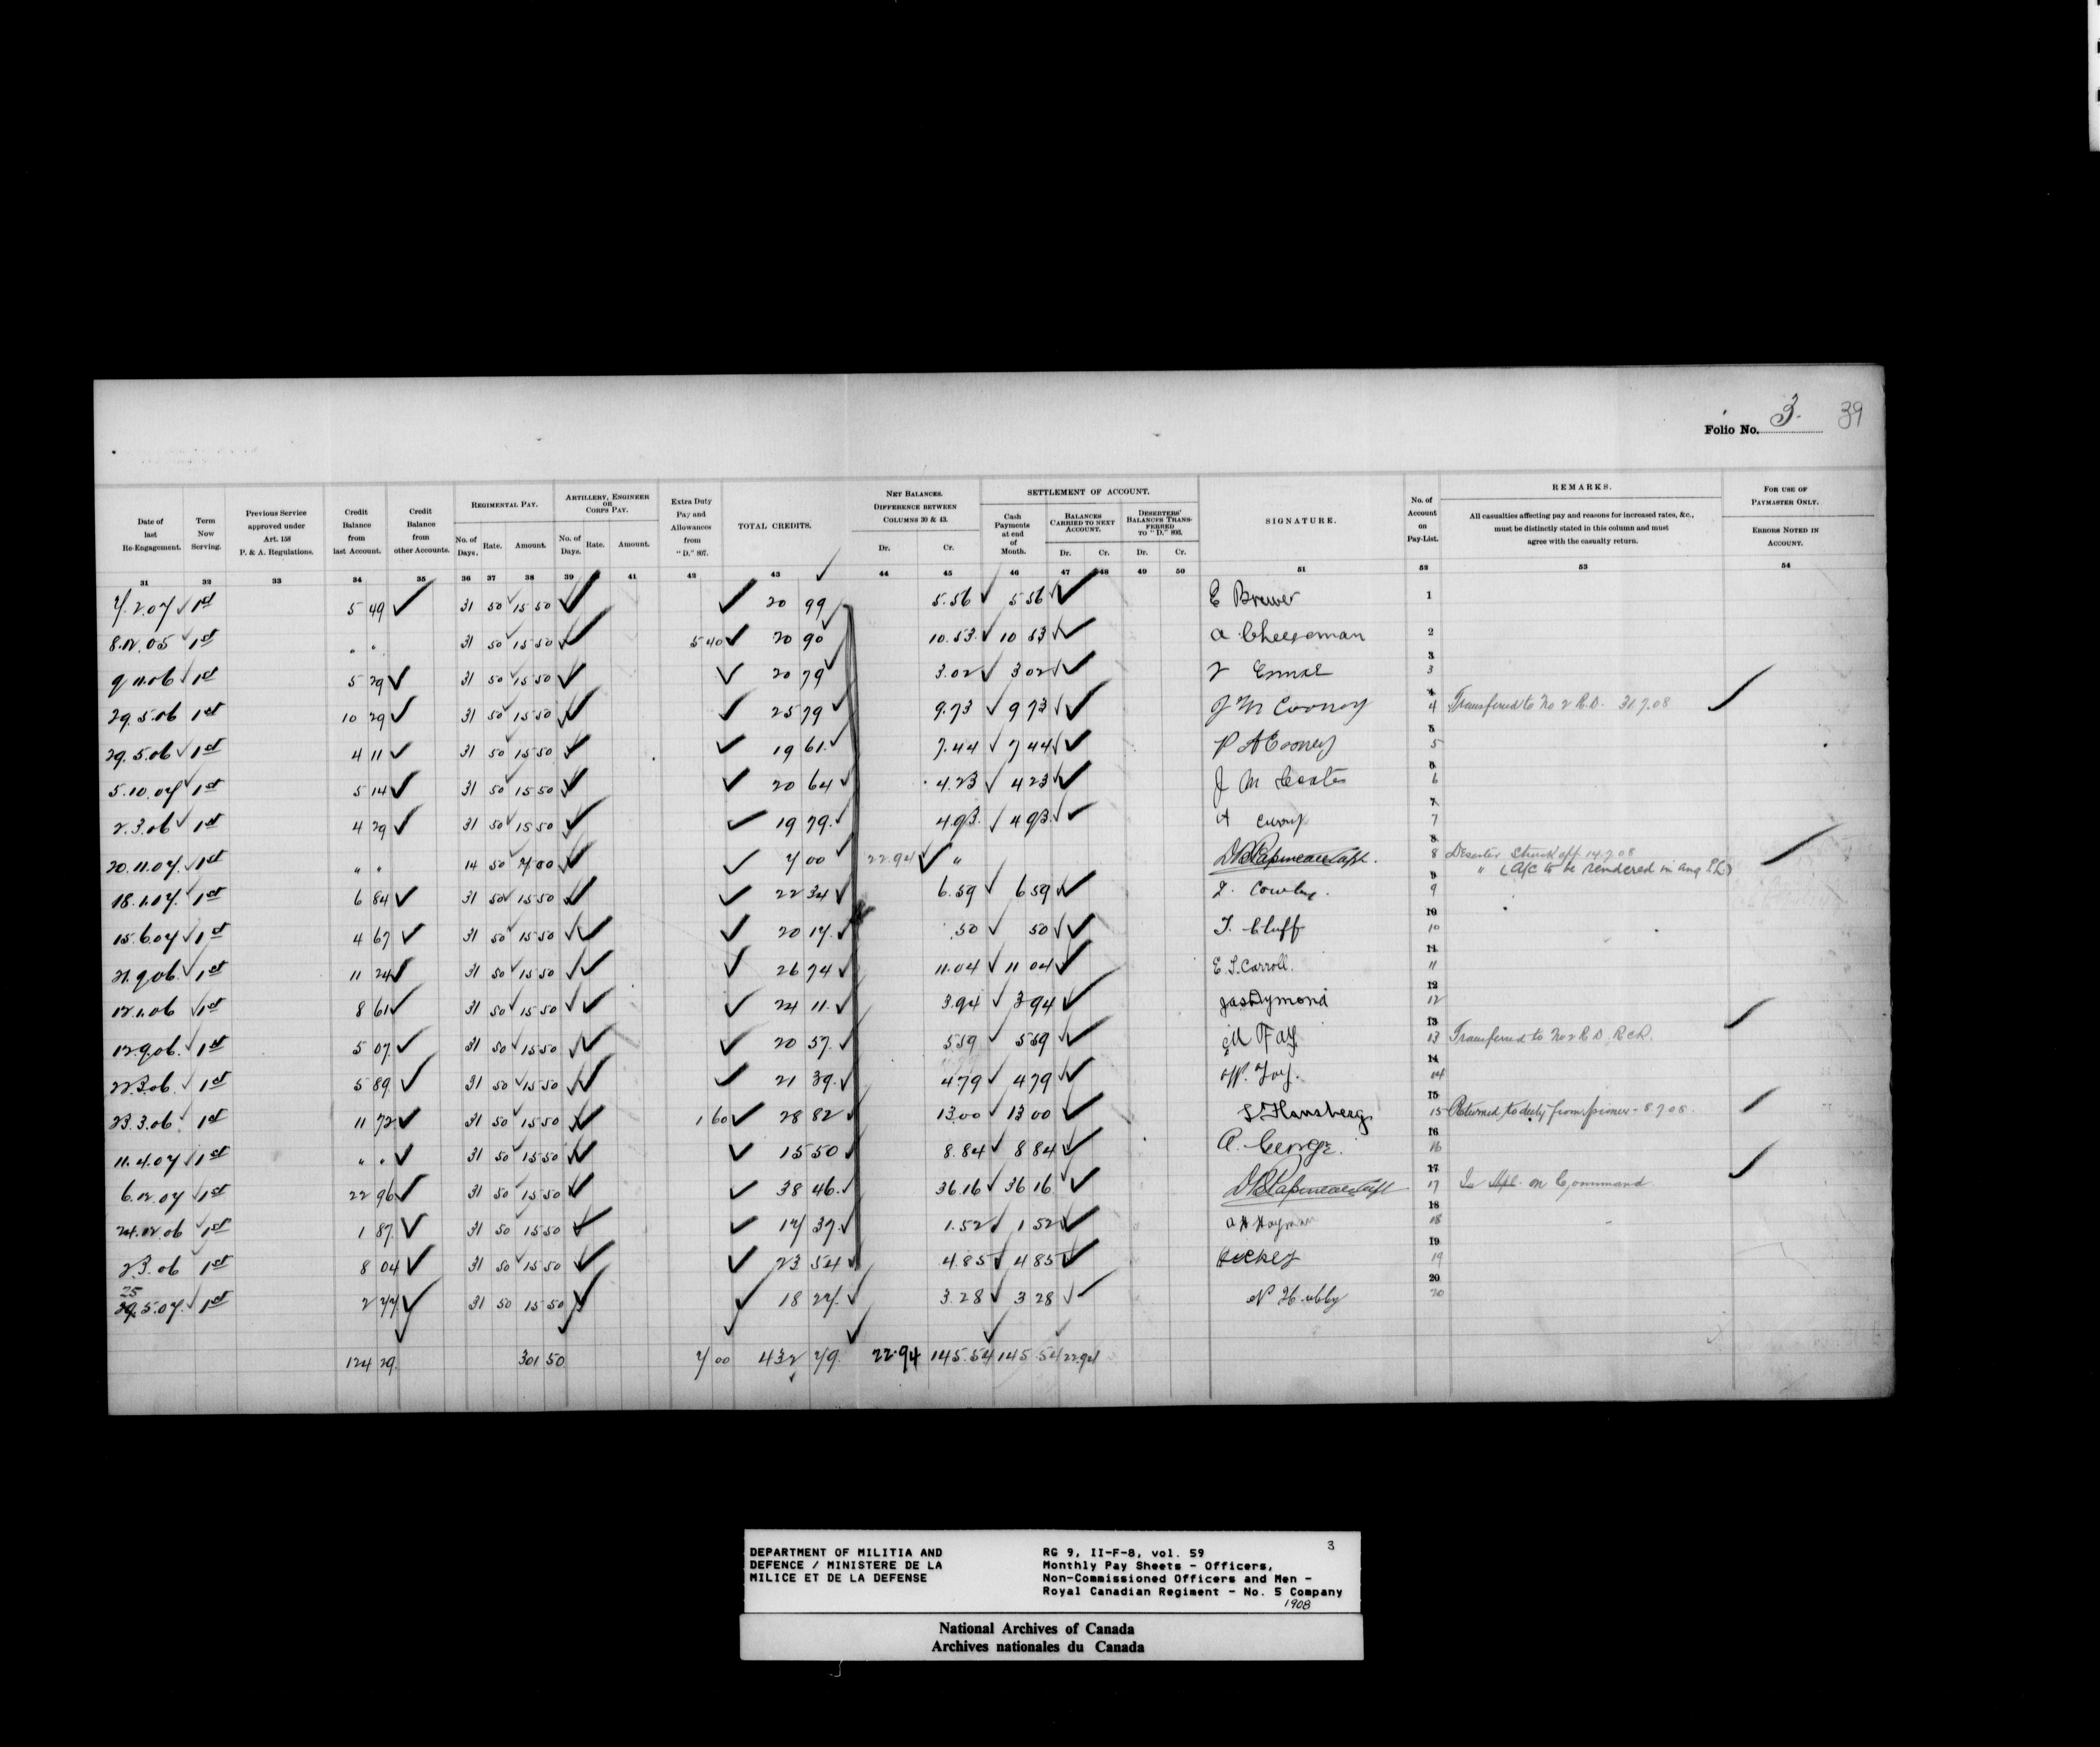 Folio No. 3. 39
Date of last Re-Engagement. Term Now Serving. Previous Service approved under Art. 158 P. & A. Regulations. Credit Balance from last Account. Credit Balance from other Accounts. REGIMENTAL PAY. No. of Days. Rate. Amount. ARTILLERY, ENGINEER OR CORPS PAY. No. of Days. Rate. Amount. Extra Duty Pay and Allowances from "D." 807. TOTAL CREDITS. NET BALANCES. DIFFERENCE BETWEEN COLUMNS 30 & 43. Dr. Cr. SETTLEMENT OF ACCOUNT. Cash Payments at end of Month. BALANCES CARRIED TO NEXT ACCOUNT. Dr. Cr. DESERTERS' BALANCES TRANSFERRED TO "D." 893. Dr. Cr. SIGNATURE. No. of Account on Pay-List. REMARKS. All casualties affecting pay and reasons for increased rates, &c., must be distinctly stated in this column and must agree with the casualty return. FOR USE OF PAYMASTER ONLY. ERRORS NOTED IN ACCOUNT.
31 32 33 34 35 36 37 38 39 41 42 43 44 45 46 47 48 49 50 51 52 53 54
7.2.07 1st 5 49 31 50 15 50 20 99 5.56 5 56 E Brewer 1
8.12.05 1st " " 31 50 15 50 5 40 20 90 10.53 10 53 A Cheeseman 2
9 11.06 1st 5 29 31 50 15 50 20 79 3.02 3 02 3
29.5.06 1st 10 29 31 50 15 50 25 79 9.73 9 73 J M Coonoy 4 Transferred to No 2 R.D. 31.7.08
29.5.06 1st 4 11 31 50 15 50 19 61 7.44 7 44 P A Cooney 5
5.10.07 1st 5 14 31 50 15 50 20 64 4.23 4 23 J M Coates 6
2.3.06 1st 4 29 31 50 15 50 19 79 4.93 4 93 7
20.11.07 1st " " 14 50 7 00 7 00 22.94 " D B Papineau Capt. 8 Deserter Struck off 14.7.08
" (A/C to be rendered in Aug P.L.)
18.1.07 1st 6 84 31 50 15 50 22 34 6.59 6 59 9
15.6.07 1st 4 67 31 50 15 50 20 17 .50 50 T. Cluff 10
21.9.06 1st 11 24 31 50 15 50 26 74 11.04 11 04 E.S. Carroll. 11
12.1.06 1st 8 61 31 50 15 50 24 11 3.94 3 94 Jas Dymond 12
12.9.06 1st 5 07 31 50 15 50 20 57 5 59 5 59 M Fay 13 Transferred to No 2 R.D. R.C.R.
22.3.06 1st 5 89 31 50 15 50 21 39 4.79 4 79 W. Foy. 14
23.3.06 1st 11 72 31 50 15 50 1 60 28 82 13.00 13 00 S. Hansberg 15 Returned to duty from prison - 8.7.08.
11.4.07 1st " " 31 50 15 50 15 50 8.84 8 84 A. George. 16
6.12.07 1st 22 96 31 50 15 50 38 46 36.16 36 16 D B Papineau Capt 17 on Command
24.12.06 1st 1 87 31 50 15 50 17 37 1.52 1 52 A H Hayman 18
2.3.06 1st 8 04 31 50 15 50 23 54 4.85 4 85 Hickey 19
25
29.5.07 1st 2 77 31 50 15 50 18 27 3.28 3 28 N Hubby 20
124 29 301 50 7 00 432 79 22.94 145.54 145 54 22.94
DEPARTMENT OF MILITIA AND
DEFENCE / MINISTERE DE LA
MILICE ET DE LA DEFENSE
RG 9, II-F-8, vol. 59 3
Monthly Pay Sheets - Officers,
Non-Commissioned Officers and Men -
Royal Canadian Regiment - No. 5 Company
1908
National Archives of Canada
Archives nationales du Canada